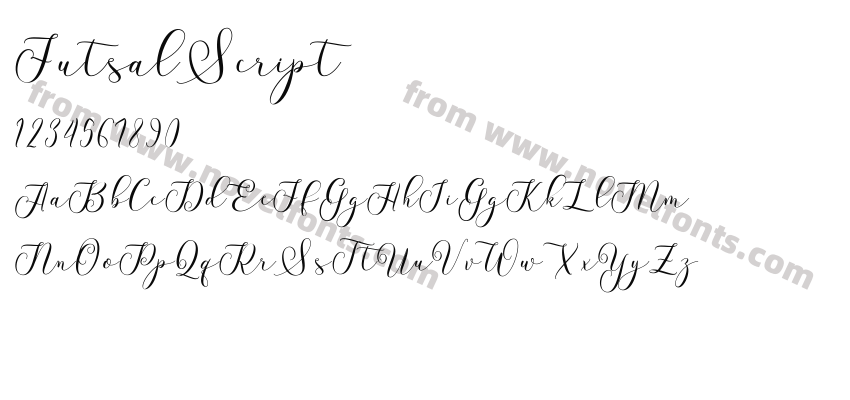 Futsal Script
1234567890
AaBbCcDdEeFfGgHhIiGgKkLlMm
NnOoPpQqRrSsTtUuVvWwXxYyZz
from www.novelfonts.com
from www.novelfonts.com